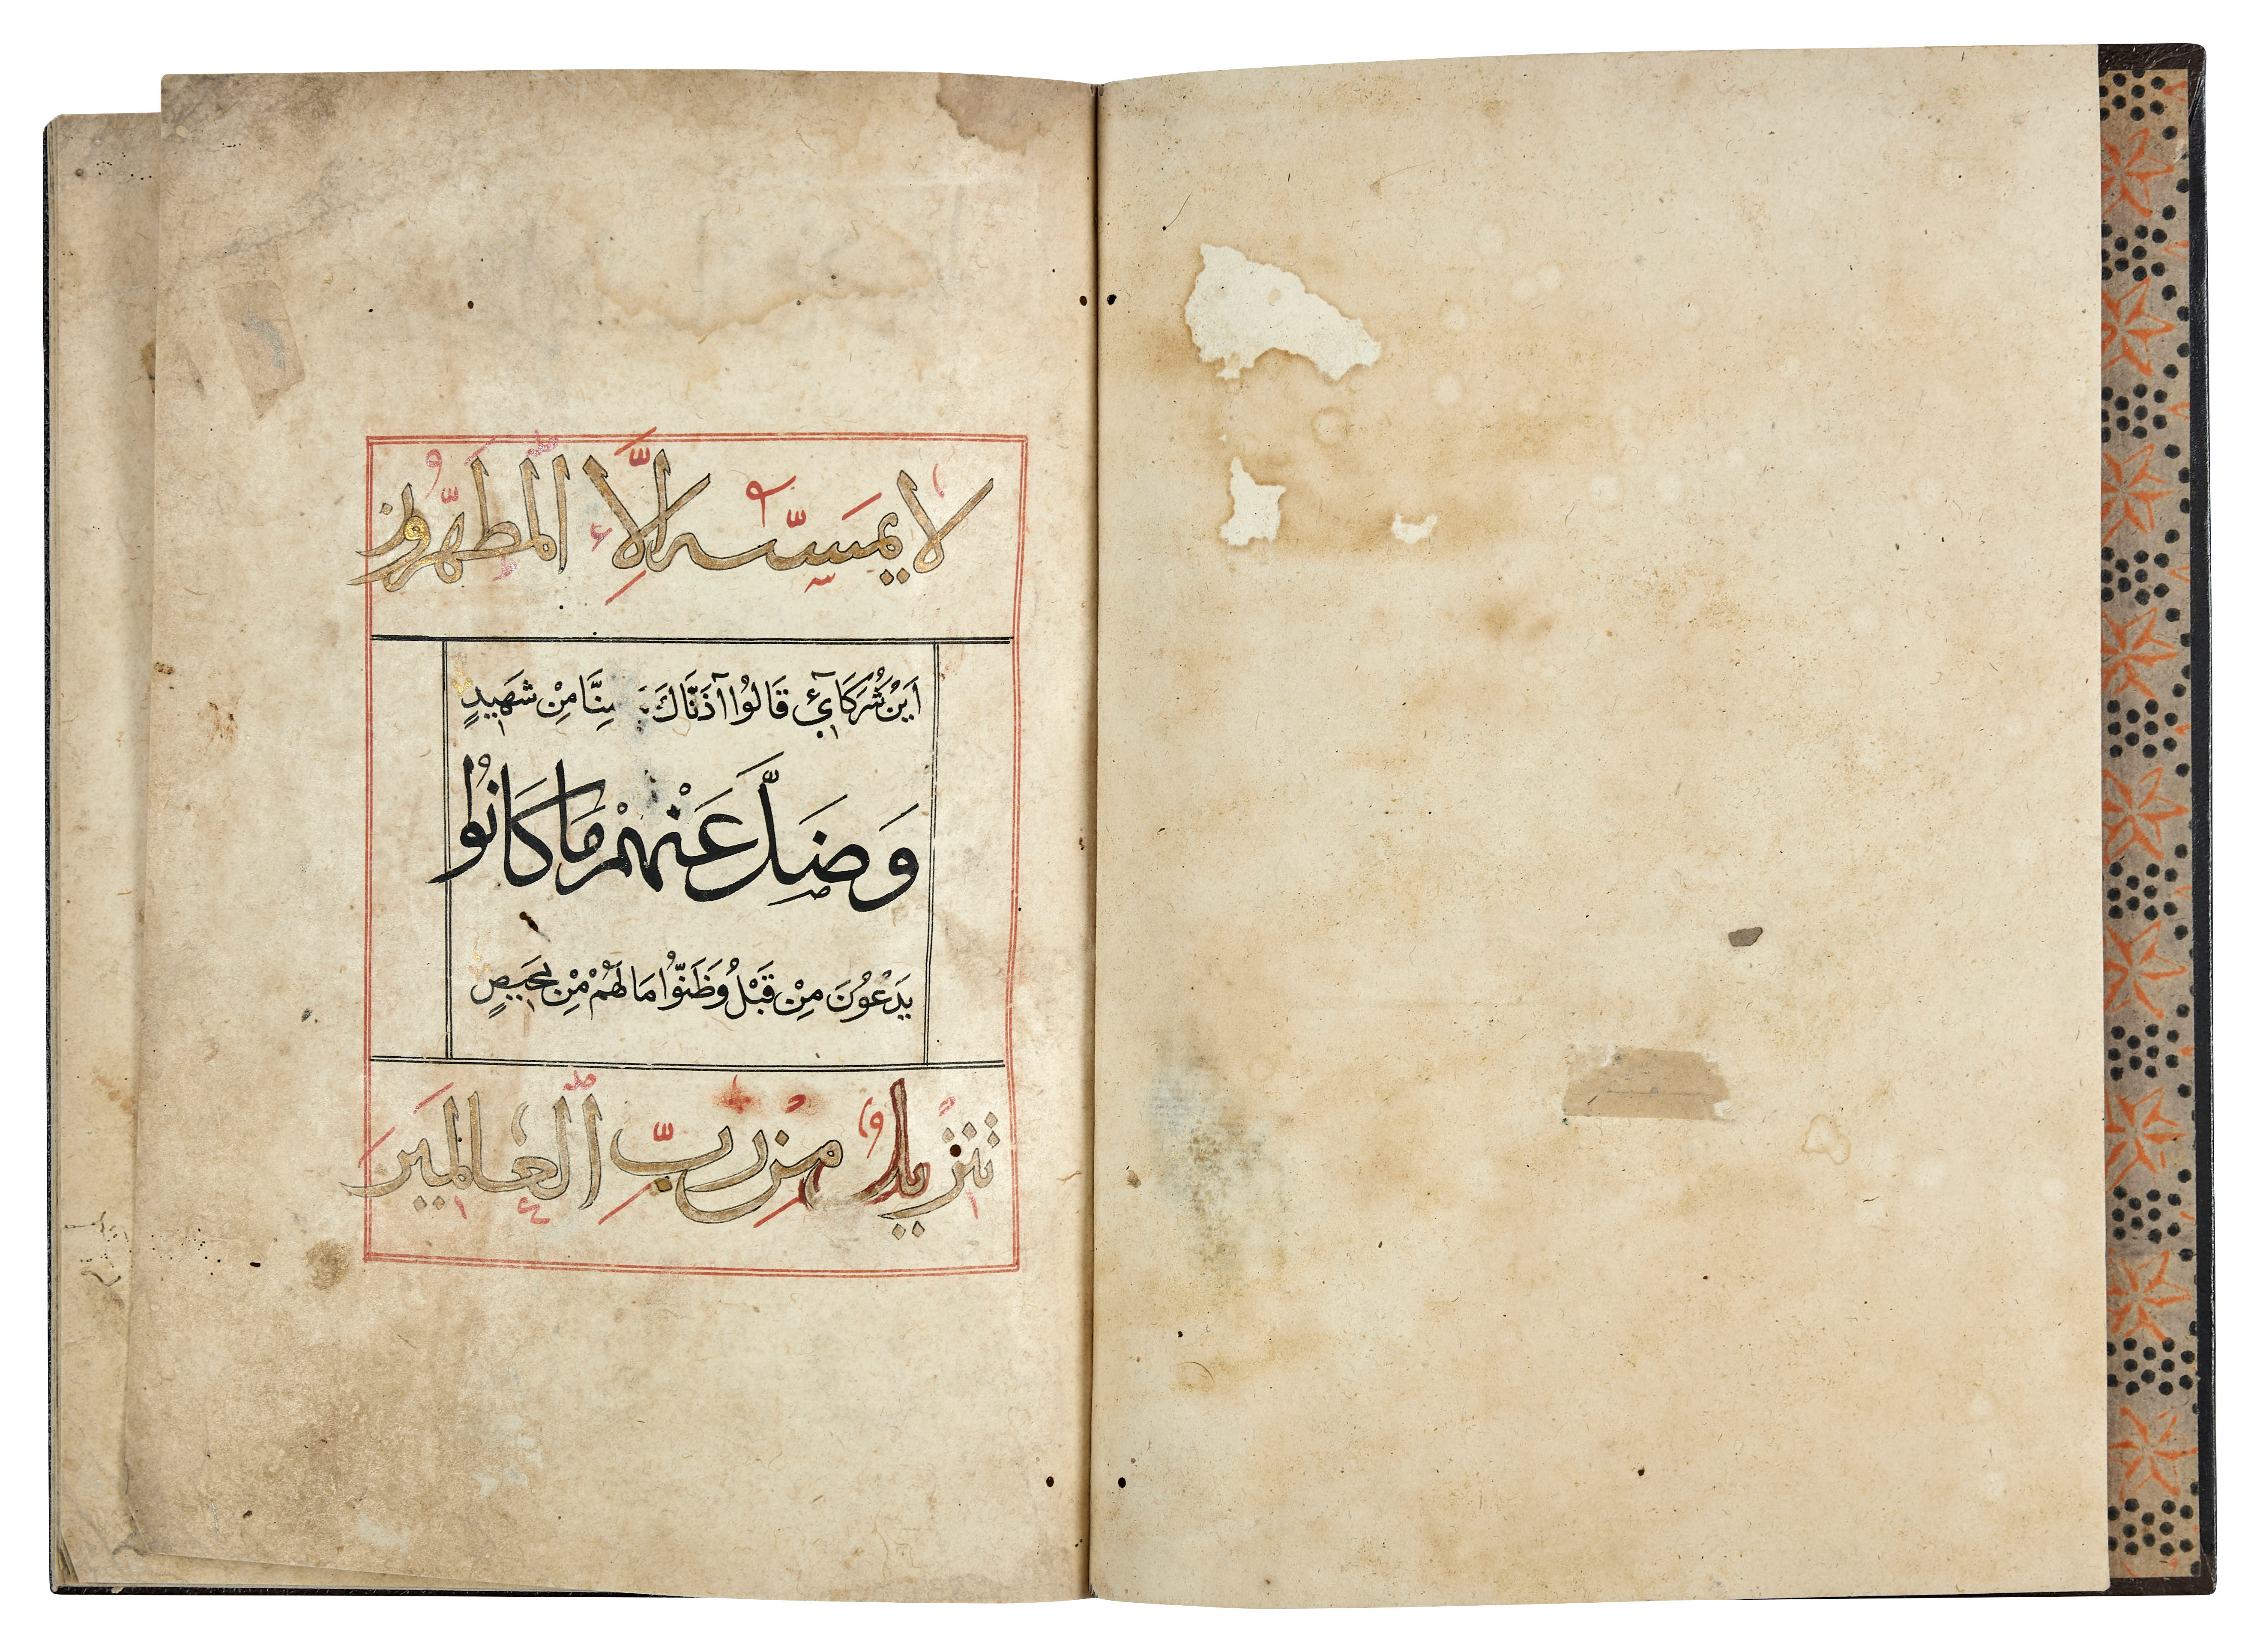 لا يمسه إلا المطهرون
اَيْنَ شُرَكَائِي قَالُوا آذَنَّاكَ مِنَّا مِنْ شَهِيدٍ
وَضَلَّ عَنْهُمْ مَا كَانُوا
يَدْعُونَ مِنْ قَبْلُ وَظَنُّوا مَا لَهُمْ مِنْ مَحِيصٍ
تنزيل من رب العالمين